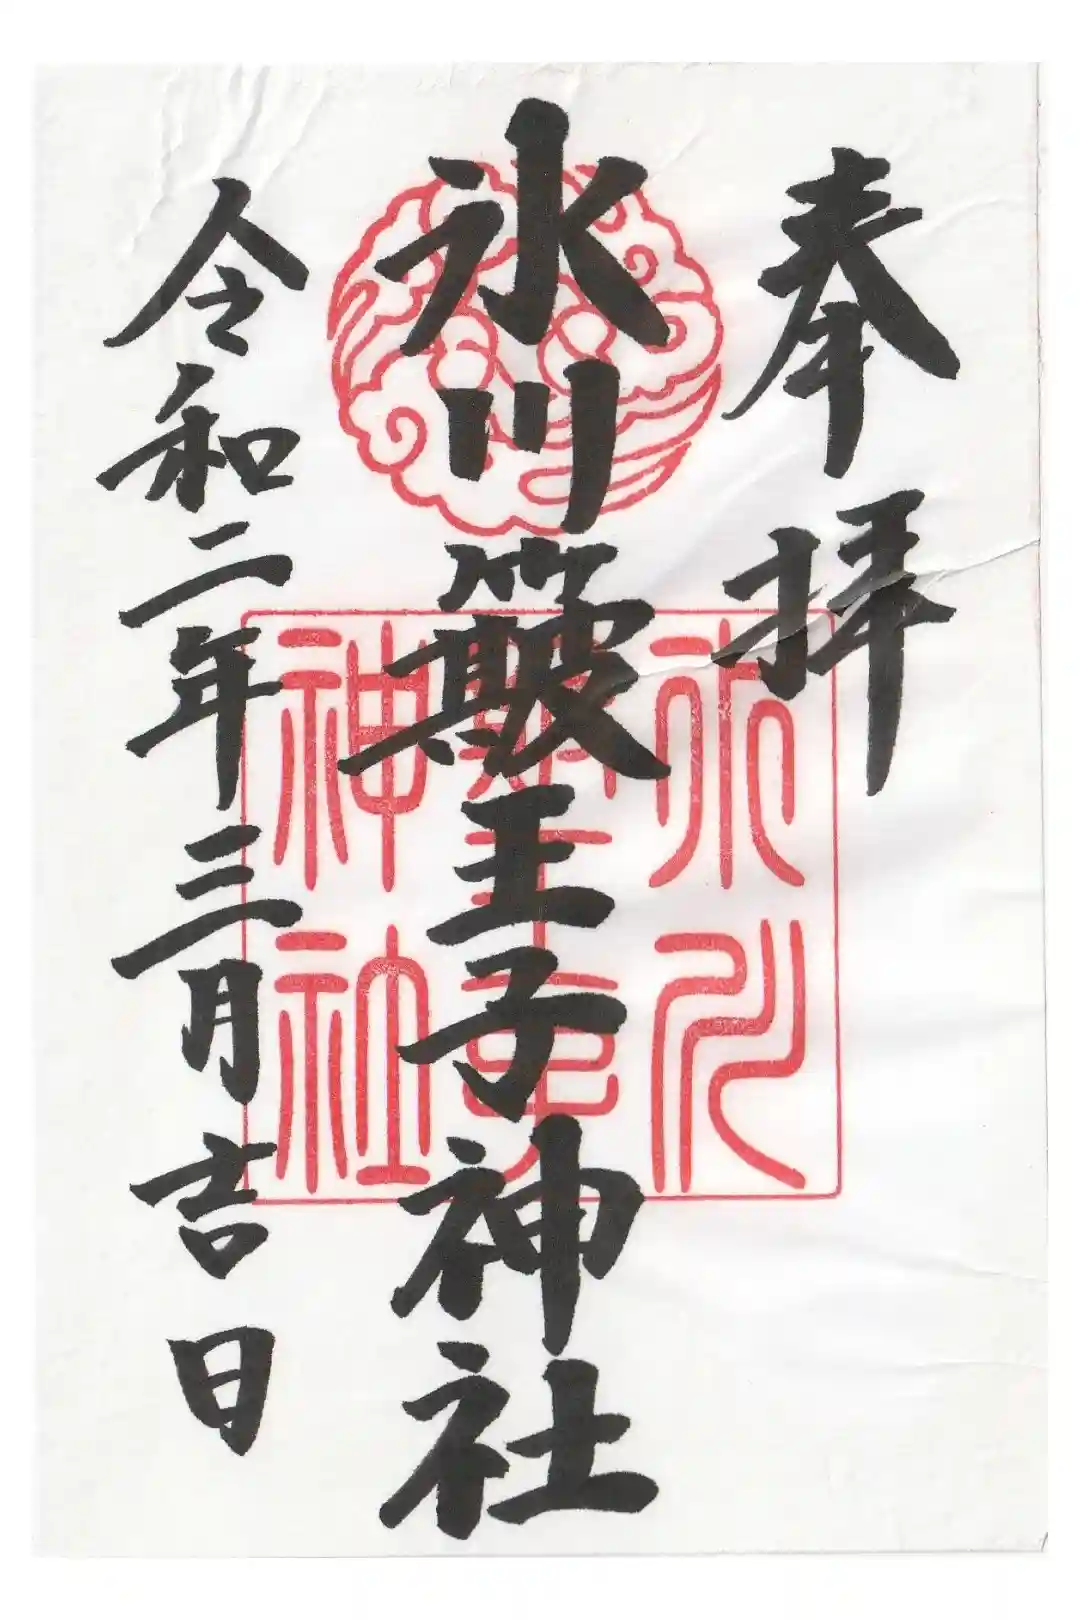 奉拝
氷川簸王子神社
令和二年三月吉日
氷川
神社